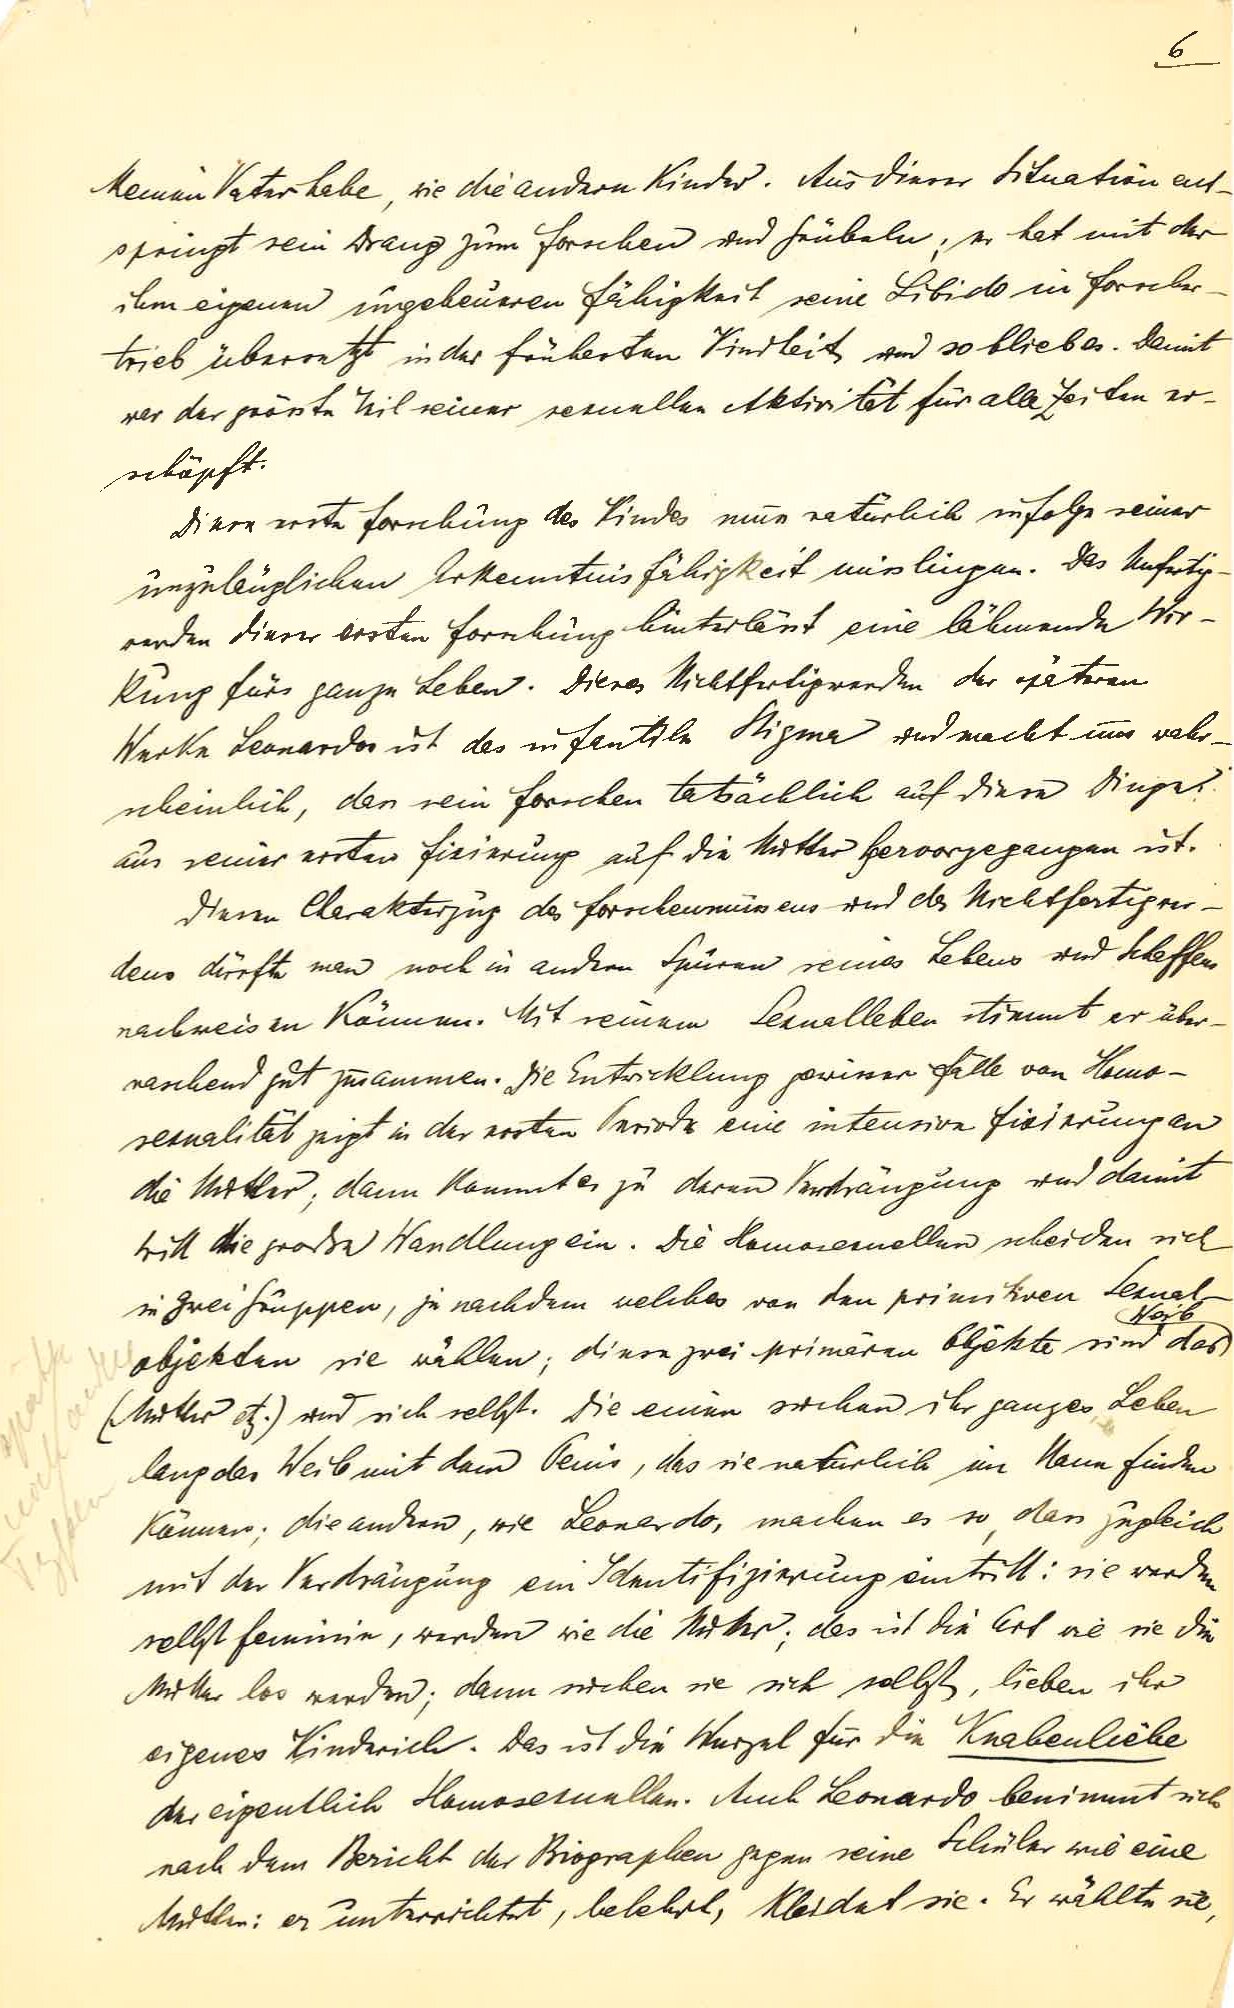 6
keinen Vater habe, wie die andern Kinder. Aus dieser Situation ent-
springt sein Drang zum Forschen und Grübeln; er hat mit der
ihm eigenen ungeheueren Fähigkeit seine Libido in Forscher-
trieb übersetzt in der frühesten Kindheit und so blieb es. Damit
war der grösste Teil seiner sexuellen Aktivität für alle Zeiten er-
schöpft.
Diese erste Forschung des Kindes muss natürlich infolge seiner
unzulänglichen Erkenntnisfähigkeit misslingen. Das Unfertig-
werden dieser ersten Forschung hinterlässt eine lähmende Wir-
kung fürs ganze Leben. Dieses Nichtfertigwerden der späteren
Werke Leonardos ist das infantile Stigma und macht uns wahr-
scheinlich, dass sein Forschen tatsächlich auf diese Dinge?
aus seiner ersten Fixierung auf die Mutter hervorgegangen ist.
Diesen Charakterzug des Forschenmüssens und des Nichtfertigwer-
dens dürfte man noch in andern Spuren seines Lebens und Schaffens
nachweisen können. Mit seinem Sexualleben stimmt er über-
raschend gut zusammen. Die Entwicklung gewisser Fälle von Homo-
sexualität zeigt in der ersten Periode eine intensive Fixierung an
die Mutter; dann kommt es zu deren Verdrängung und damit
tritt die grosse Wandlung ein. Die Homosexuellen scheiden sich
in zwei Gruppen, je nachdem welches von den primitiven Sexual-
objekten sie wählen; diese zwei primären Objekte sind das Weib
(Mutter etz.) und sich selbst. Die einen suchen ihr ganzes Leben
lang das Weib mit dem Penis, das sie natürlich im Mann finden
können; die andern, wie Leonardo, machen es so, dass zugleich
mit der Verdrängung ein Identifizierung eintritt: sie werden
selbst feminin, werden wie die Mutter; das ist die Art wie sie die
Mutter los werden; dann suchen sie sich selbst, lieben ihr
eigenes Kinderich. Das ist die Wurzel für die Knabenliebe
der eigentlich Homosexuellen. Auch Leonardo benimmt sich
nach dem Bericht der Biographen gegen seine Schüler wie eine
Mutter: er unterrichtet, belehrt, kleidet sie. Er wählte sie,
später
noch andere
Typen